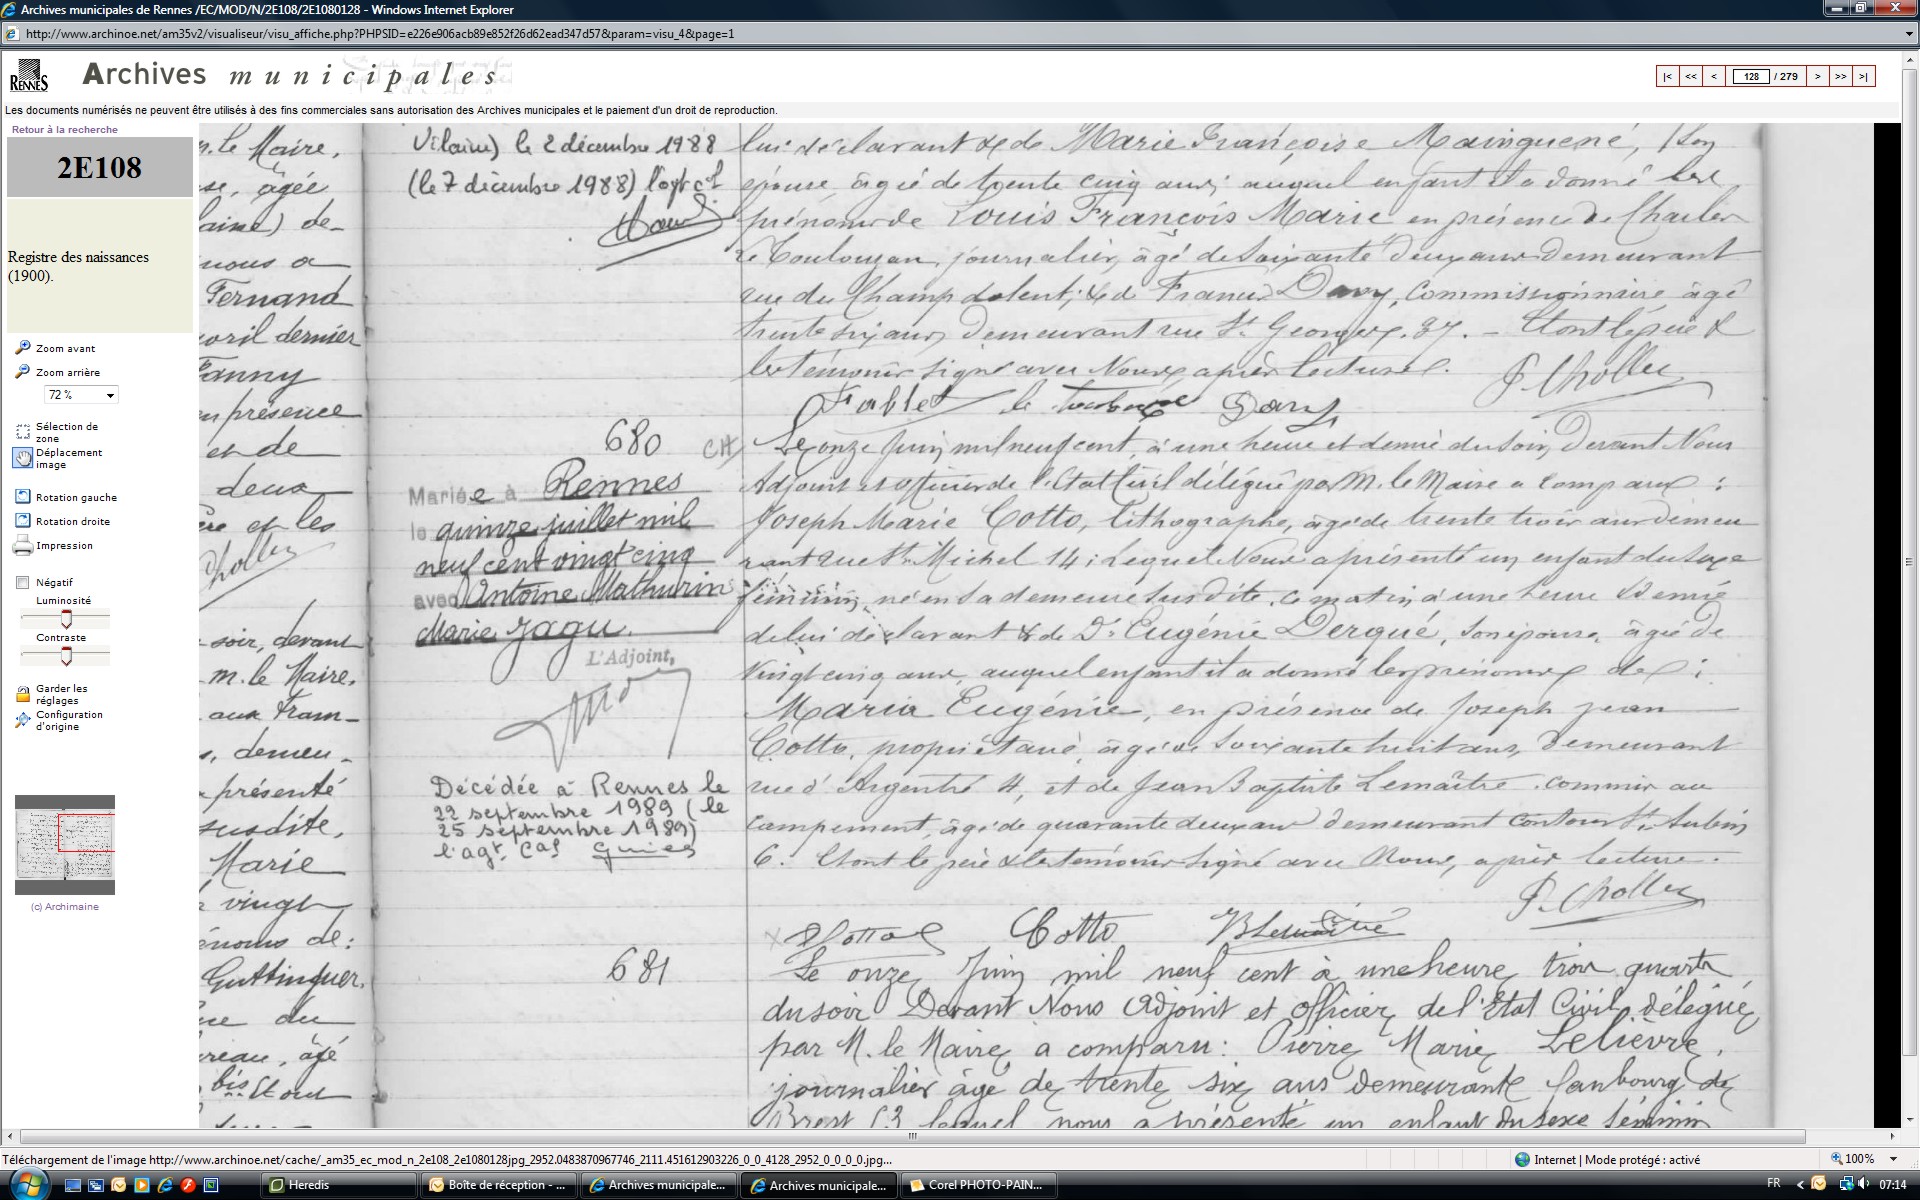 Archives municipales de Rennes /EC/MOD/N/2E108/2E1080128 - Windows Internet Explorer
http://www.archinoe.net/am35v2/visualiseur/visu_affiche.php?PHPSID=e226e906acb89e852f26d62ead347d57&param=visu_4&page=1
RENNES
Archives municipales
|< << < 128 / 279 > >> >|
Les documents numérisés ne peuvent être utilisés à des fins commerciales sans autorisation des Archives municipales et le paiement d'un droit de reproduction.
Retour à la recherche
2E108
Registre des naissances
(1900).
Zoom avant
Zoom arrière
72 %
Sélection de
zone
Déplacement
image
Rotation gauche
Rotation droite
Impression
Négatif
Luminosité
Contraste
Garder les
réglages
Configuration
d'origine
(c) Archimaine
le Maire,
âgée
de-
nous a
Fernand
avril dernier
Fanny
en présence
et de
deux
et les
soir, devant
m. le Maire,
aux Tram-
demeu-
présenté
susdite,
Marie
vingt
énoms de:
Guttinguer,
du
âgé
bis. Et ont
Vilaine) le 2 décembre 1988
(le 7 décembre 1988) l'agt cal
680
Mariée à Rennes
le quinze juillet mil
neuf cent vingt cinq
avec Antoine Mathurin
Marie Jagu.
L'Adjoint,
Décédée à Rennes le
22 septembre 1989 (le
25 septembre 1989)
l'agt. cal
681
lui déclarant & de Marie Françoise Mainguené, son
épouse, âgée de trente cinq ans; auquel enfant il a donné les
prénoms de Louis François Marie en présence de Charles
Le Toulouzan, journalier, âgé de soixante deux ans demeurant
rue du Champ dolent; & de Francis Davy, commissionnaire âgé
trente six ans, demeurant rue St Georges, 37. - Et ont le père &
les témoins signé avec Nous, après lecture. P. Chollet
Fablet le Davy
CH Le onze Juin mil neuf cent, à une heure et demie du soir, devant Nous
Adjoint et officier de l'Etat Civil délégué par M. le Maire a comparu :
Joseph Marie Cotto, lithographe, âgé de trente trois ans demeu
rant rue St Michel 14; Lequel Nous a présenté un enfant du sexe
féminin, né en sa demeure susdite, ce matin, à une heure & demie
de lui déclarant & de De Eugénie Derqué, son épouse, âgée de
vingt cinq ans, auquel enfant il a donné les prénoms de :
Maria Eugénie, en présence de Joseph Jean
Cotto, propriétaire, âgé de soixante huit ans, demeurant
rue d'Argentré 4, et de Jean Baptiste Lemaître, commis au
campement, âgé de quarante deux ans demeurant contour St Aubin
6. Et ont le père & les témoins signé avec Nous, après lecture.
P. Chollet
Cotto
Le onze Juin mil neuf cent à une heure trois quarts
du soir Devant Nous Adjoint et officier de l'Etat Civil délégué
par M. le Maire, a comparu : Pierre Marie Lelièvre,
journalier âgé de trente six ans demeurant faubourg de
Brest 63 lequel nous a présenté un enfant du sexe féminin
Téléchargement de l'image http://www.archinoe.net/cache/_am35_ec_mod_n_2e108_2e1080128jpg_2952.0483870967746_2111.451612903226_0_0_4128_2952_0_0_0_0.jpg...
Internet | Mode protégé : activé
100%
Heredis
Boîte de réception - ...
Archives municipale...
Archives municipale...
Corel PHOTO-PAIN...
FR
07:14